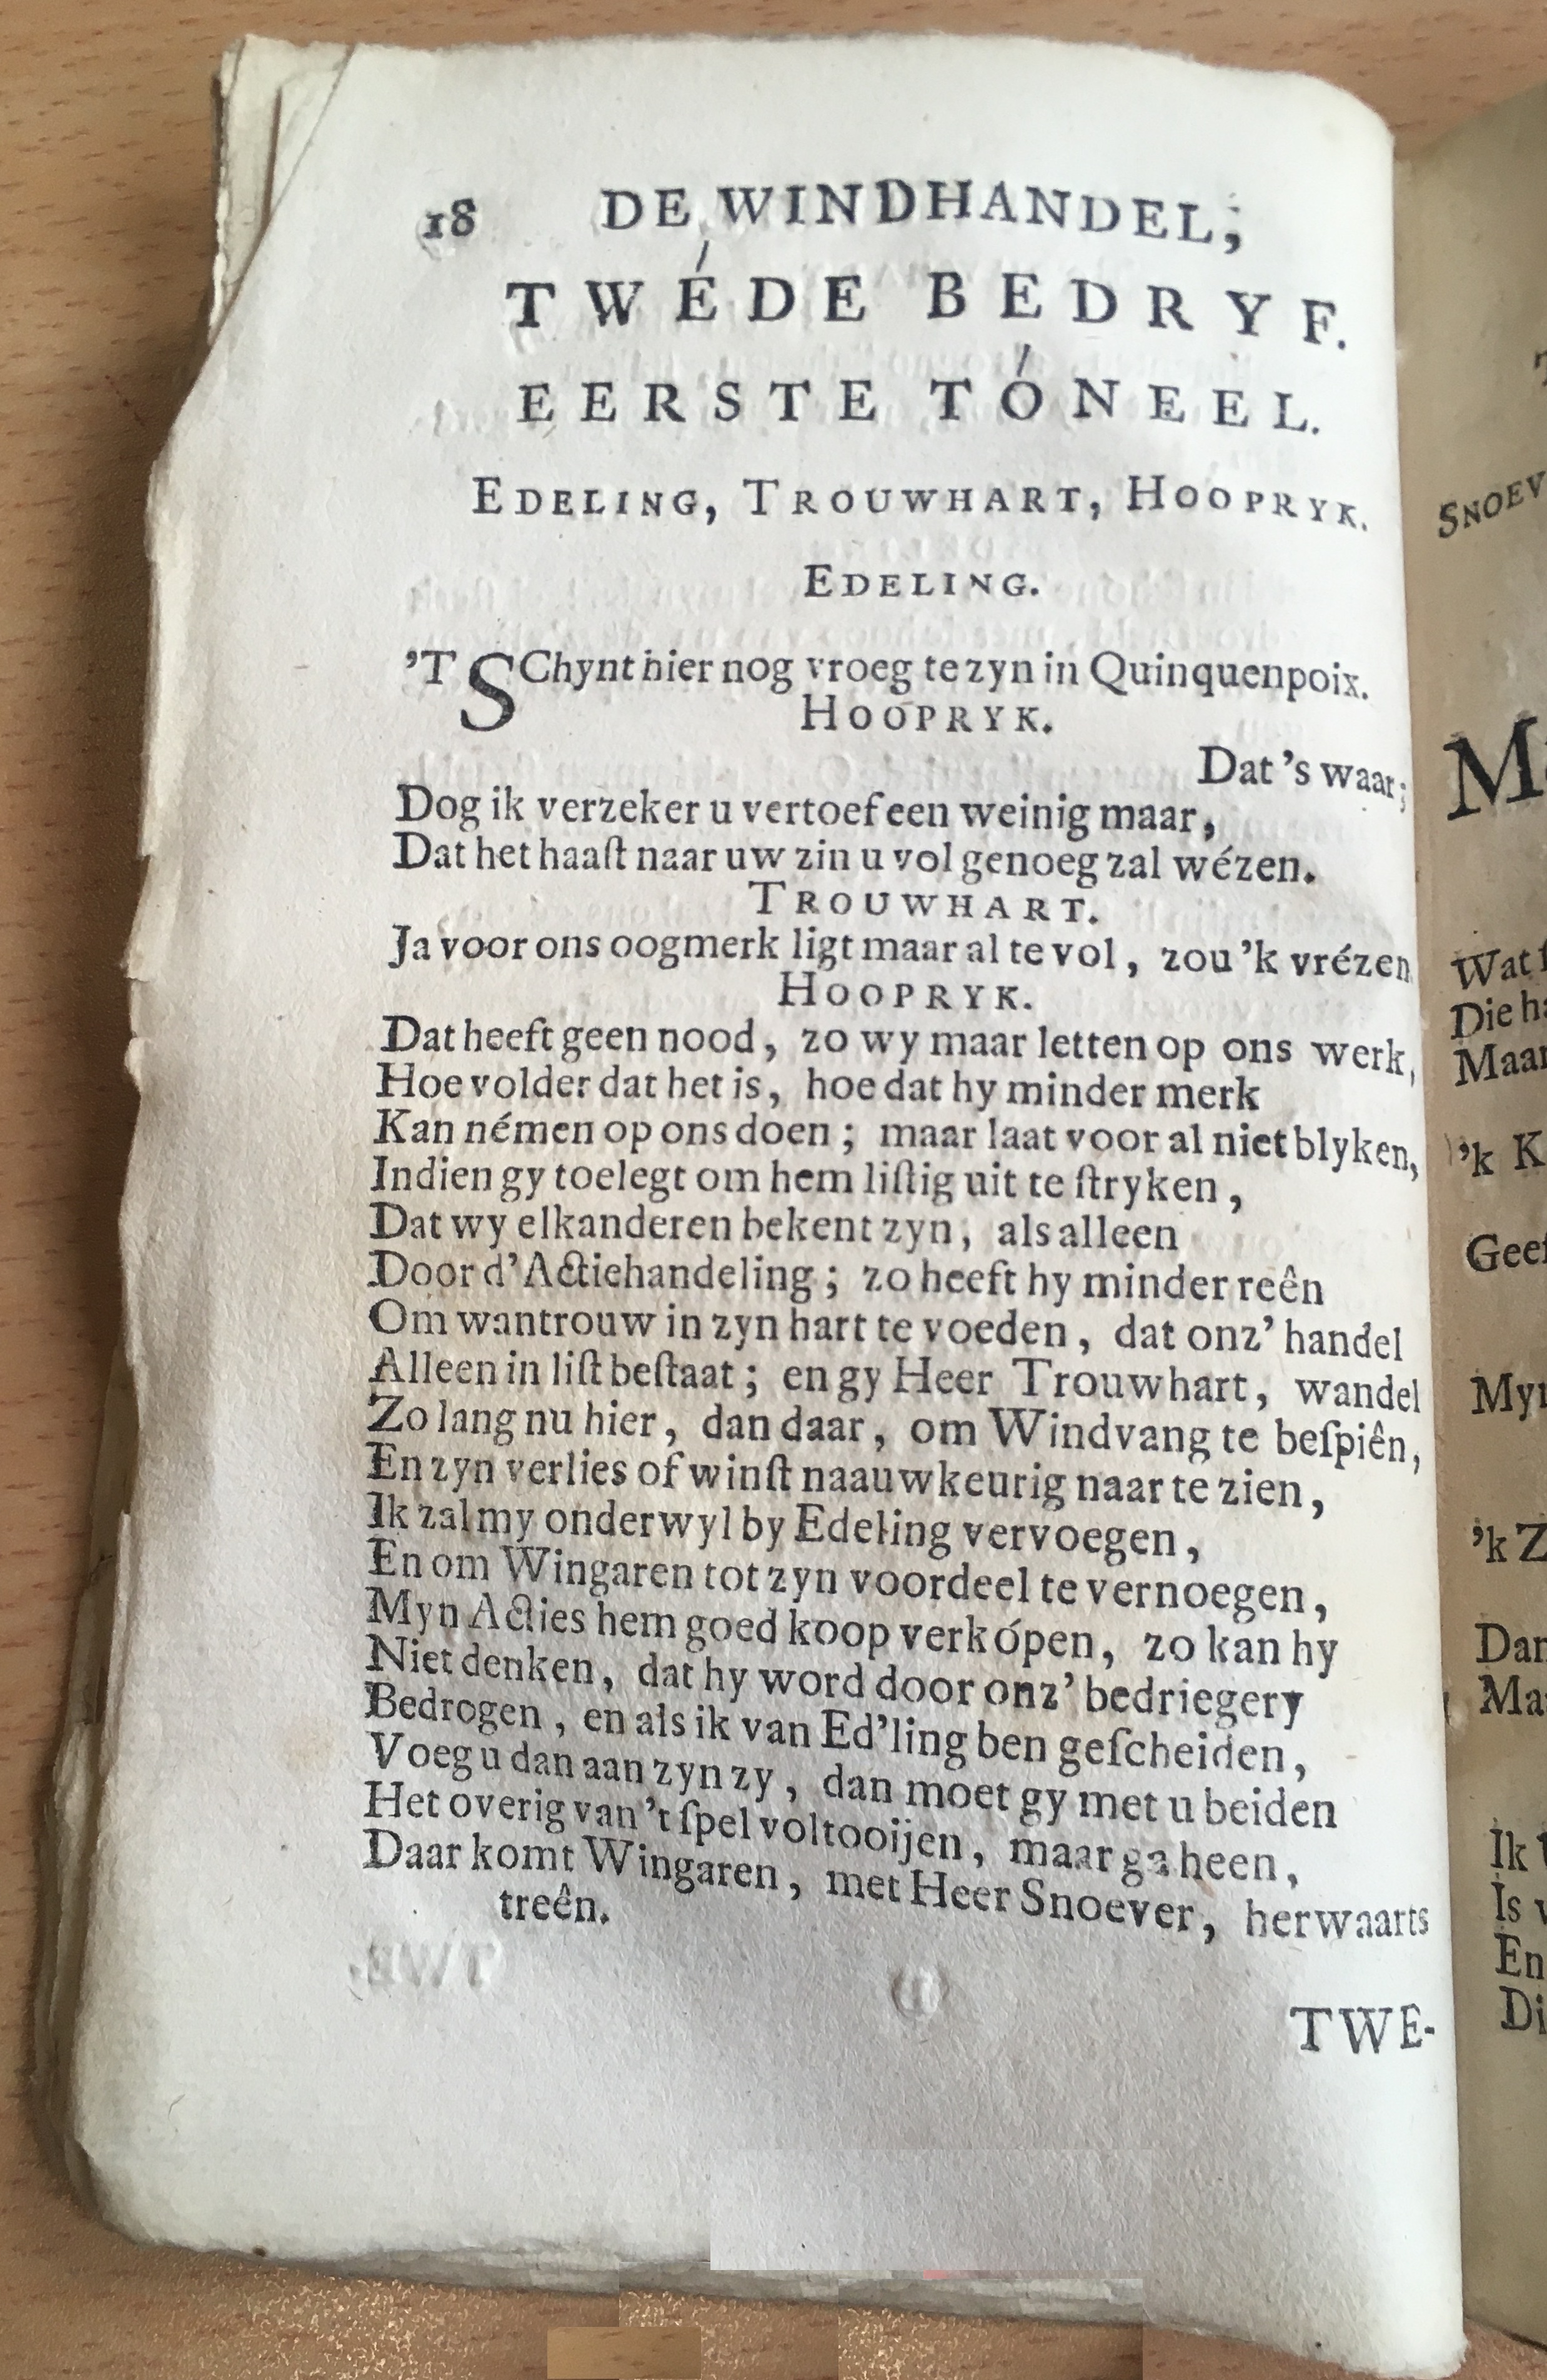 18 DE WINDHANDEL;
TWÉDE BEDRYF.
EERSTE TÓNEEL.
EDELING, TROUWHART, HOOPRYK.
EDELING.
'T SChynt hier nog vroeg te zyn in Quinquenpoix.
HOOPRYK.
Dat 's waar;
Dog ik verzeker u vertoef een weinig maar,
Dat het haaſt naar uw zin u vol genoeg zal wézen.
TROUWHART.
Ja voor ons oogmerk ligt maar al te vol, zou 'k vrézen
HOOPRYK.
Dat heeft geen nood, zo wy maar letten op ons werk,
Hoe volder dat het is, hoe dat hy minder merk
Kan némen op ons doen; maar laat voor al niet blyken,
Indien gy toelegt om hem liſtig uit te ſtryken,
Dat wy elkanderen bekent zyn, als alleen
Door d'Actiehandeling; zo heeft hy minder reên
Om wantrouw in zyn hart te voeden, dat onz' handel
Alleen in liſt beſtaat; en gy Heer Trouwhart, wandel
Zo lang nu hier, dan daar, om Windvang te beſpiên,
En zyn verlies of winſt naauwkeurig naar te zien,
Ik zal my onderwyl by Edeling vervoegen,
En om Wingaren tot zyn voordeel te vernoegen,
Myn Acties hem goed koop verkópen, zo kan hy
Niet denken, dat hy word door onz' bedriegery
Bedrogen, en als ik van Ed'ling ben geſcheiden,
Voeg u dan aan zyn zy, dan moet gy met u beiden
Het overig van 't ſpel voltooijen, maar ga heen,
Daar komt Wingaren, met Heer Snoever, herwaarts
treên.
TWE-
SNOEV
Wat
Die
Maar
'k K
Geef
Myn
'k Z
Dan
Ma
Ik
Is
En
Di